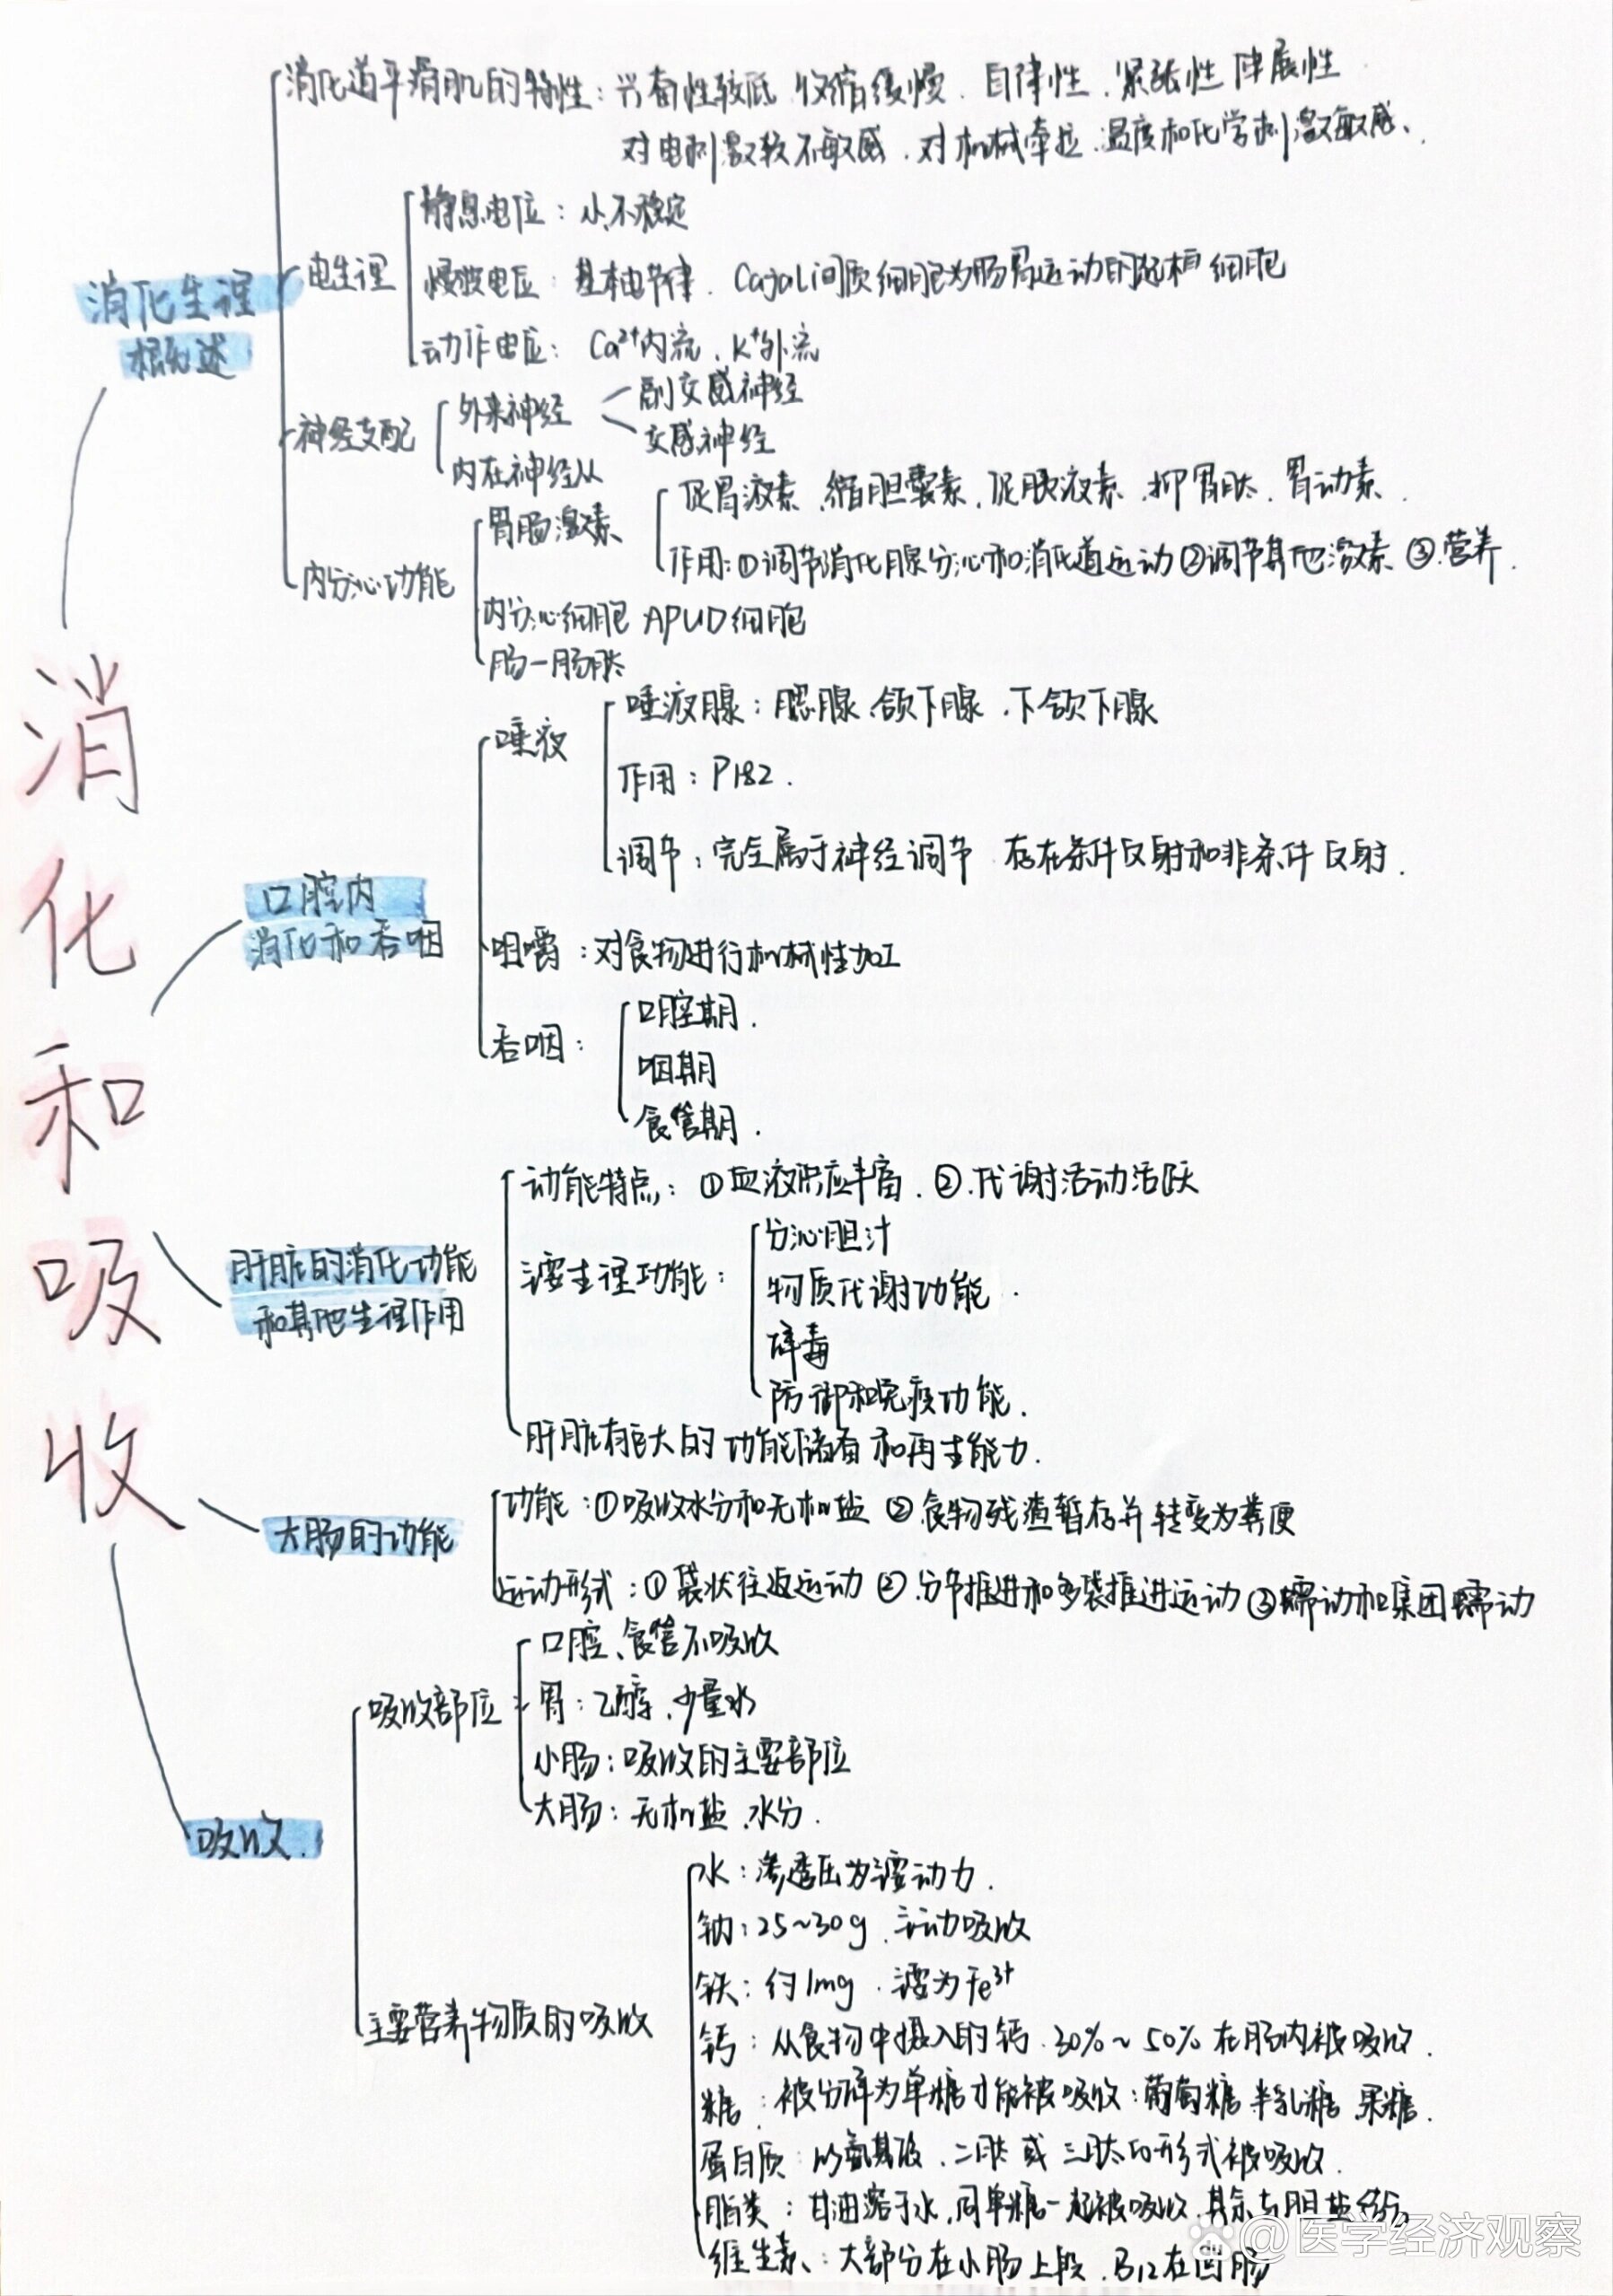 消化道平滑肌的特性：兴奋性较低、收缩缓慢、自律性、紧张性、伸展性
对电刺激较不敏感、对机械牵拉、温度和化学刺激敏感、
静息电位：小、不稳定
电生理
慢波电位：基本电节律、Cajal间质细胞为肠胃运动的起搏细胞
消化生理
概述
动作电位：Ca²⁺内流、K⁺外流
神经支配
外来神经
副交感神经
交感神经
内在神经丛
内分泌功能
胃肠激素
促胃液素、缩胆囊素、促胰液素、抑胃肽、胃动素.
作用：①调节消化腺分泌和消化道运动②调节其他激素③营养.
内分泌细胞 APUD细胞
肠-肠肽
消化和吸收
口腔内
消化和吞咽
唾液
唾液腺：腮腺、颌下腺、下颌下腺
作用：P182.
调节：完全属于神经调节 存在条件反射和非条件反射.
咀嚼：对食物进行机械性加工
吞咽：
口腔期.
咽期
食管期.
肝脏的消化功能
和其他生理作用
功能特点：①血液供应丰富.②.代谢活动活跃
主要生理功能：
分泌胆汁
物质代谢功能.
解毒
防御和免疫功能.
肝脏有巨大的功能储备和再生能力.
大肠的功能
功能：①吸收水分和无机盐②食物残渣暂存并转变为粪便
运动形式：①袋状往返运动②.分节推进和多袋推进运动③蠕动和集团蠕动
吸收.
吸收部位：
口腔、食管不吸收
胃：乙醇、少量水
小肠：吸收的主要部位
大肠：无机盐、水分.
主要营养物质的吸收
水：渗透压为主要动力.
钠：25~30g、主动吸收
铁：约1mg、主要为Fe³⁺
钙：从食物中摄入的钙、30%~50%在肠内被吸收.
糖：被分解为单糖才能被吸收：葡萄糖 半乳糖 果糖.
蛋白质：以氨基酸、二肽或三肽的形式被吸收.
脂类：甘油溶于水，同单糖一起被吸收，其余与胆盐结合
维生素、：大部分在小肠上段、B12在回肠
@医学经济观察